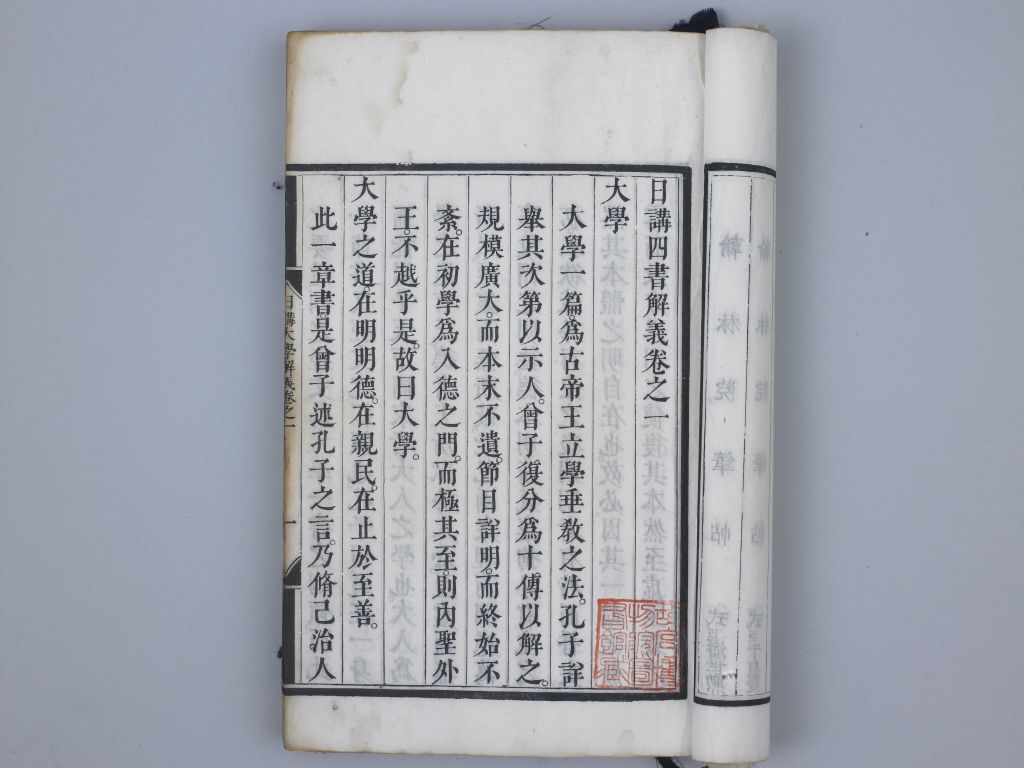 日講四書解義卷之一
大學
大學一篇為古帝王立學垂敎之法。孔子詳
舉其次第以示人。曾子。復分為十傳以解之。
規模廣大。而本末不遺。節目詳明。而終始不
紊。在初學為入德之門。而極其至。則內聖外
王。不越乎是。故曰大學。
大學之道。在明明德。在親民。在止於至善。
此一章書。是曾子述孔子之言。乃脩己治人
日講大學解義卷之一
一